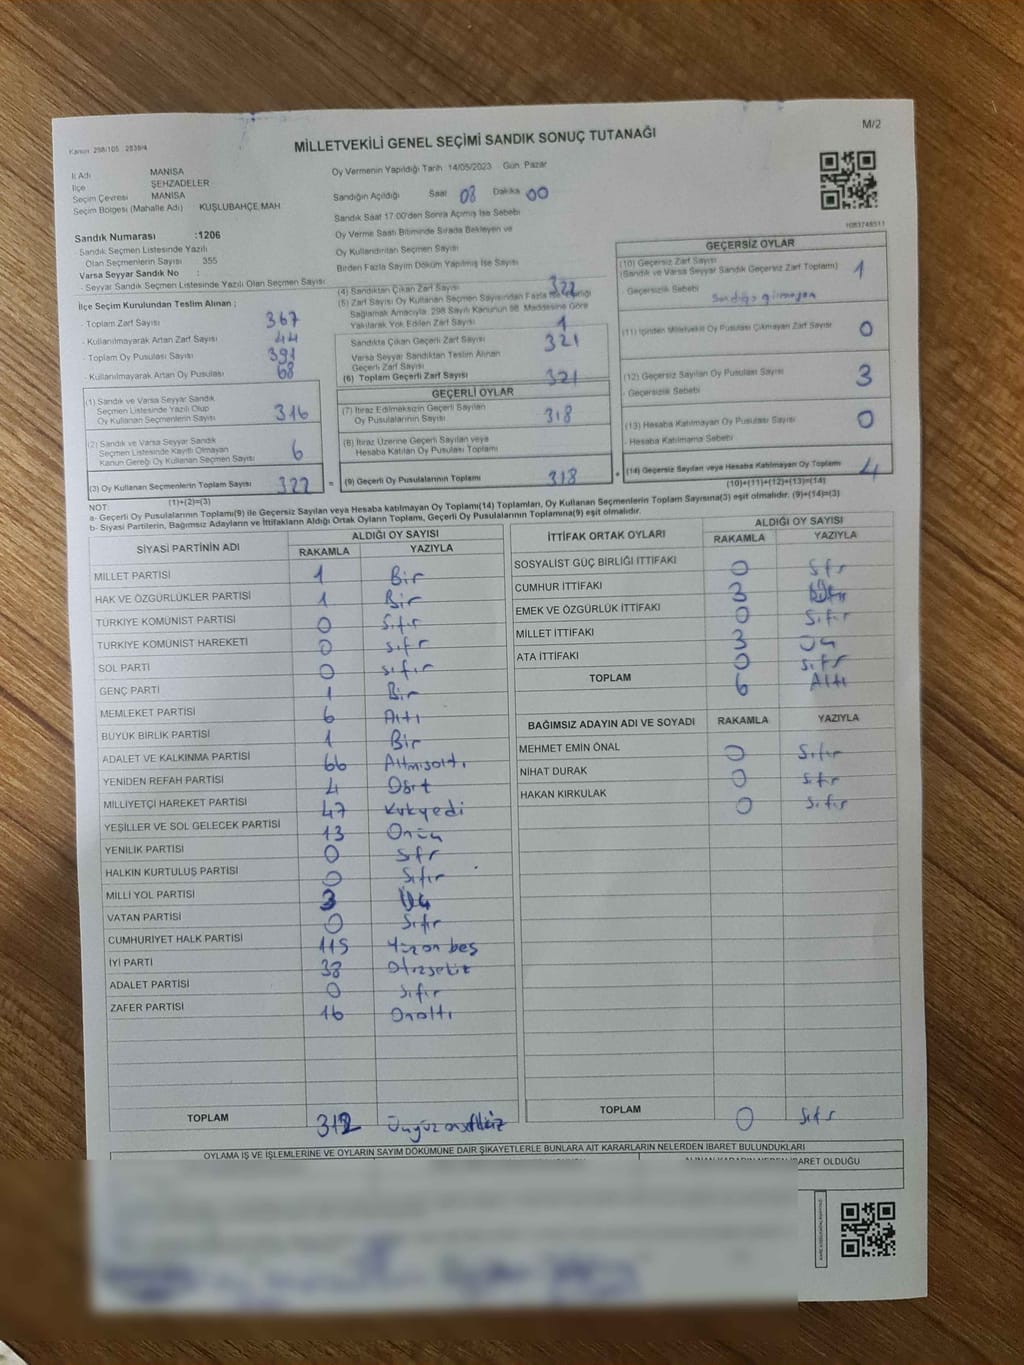 M/2
Kanun: 298/105 : 2839/4
MİLLETVEKİLİ GENEL SEÇİMİ SANDIK SONUÇ TUTANAĞI
İl Adı MANİSA
İlçe ŞEHZADELER
Seçim Çevresi MANİSA
Seçim Bölgesi (Mahalle Adı) KUŞLUBAHÇE MAH
Sandık Numarası :1206
- Sandık Seçmen Listesinde Yazılı
Olan Seçmenlerin Sayısı 355
Varsa Seyyar Sandık No :
- Seyyar Sandık Seçmen Listesinde Yazılı Olan Seçmen Sayısı
İlçe Seçim Kurulundan Teslim Alınan ;
- Toplam Zarf Sayısı 367
- Kullanılmayarak Artan Zarf Sayısı 44
- Toplam Oy Pusulası Sayısı 391
- Kullanılmayarak Artan Oy Pusulası 68
(1) Sandık ve Varsa Seyyar Sandık
Seçmen Listesinde Yazılı Olup
Oy Kullanan Seçmenlerin Sayısı 316
(2) Sandık ve Varsa Seyyar Sandık
Seçmen Listesinde Kayıtlı Olmayan
Kanun Gereği Oy Kullanan Seçmen Sayısı 6
(3) Oy Kullanan Seçmenlerin Toplam Sayısı 322
(1)+(2)=(3)
Oy Vermenin Yapıldığı Tarih 14/05/2023 Gün Pazar
Sandığın Açıldığı Saat 08 Dakika 00
Sandık Saat 17:00'den Sonra Açılmış İse Sebebi
Oy Verme Saati Bitiminde Sırada Bekleyen ve
Oy Kullandırılan Seçmen Sayısı
Birden Fazla Sayım Döküm Yapılmış İse Sayısı
(4) Sandıktan Çıkan Zarf Sayısı 322
(5) Zarf Sayısı Oy Kullanan Seçmen Sayısından Fazla İse Eşitliği
Sağlamak Amacıyla 298 Sayılı Kanunun 98. Maddesine Göre
Yakılarak Yok Edilen Zarf Sayısı
1
Sandıkta Çıkan Geçerli Zarf Sayısı 321
Varsa Seyyar Sandıktan Teslim Alınan
Geçerli Zarf Sayısı
(6) Toplam Geçerli Zarf Sayısı 321
GEÇERLİ OYLAR
(7) İtiraz Edilmeksizin Geçerli Sayılan
Oy Pusulalarının Sayısı 318
(8) İtiraz Üzerine Geçerli Sayılan veya
Hesaba Katılan Oy Pusulaları Toplamı
= (9) Geçerli Oy Pusulalarının Toplamı 318
1083748511
GEÇERSİZ OYLAR
(10) Geçersiz Zarf Sayısı
(Sandık ve Varsa Seyyar Sandık Geçersiz Zarf Toplamı) 1
- Geçersizlik Sebebi
Sandığa girmeyen
(11) İçinden Milletvekili Oy Pusulası Çıkmayan Zarf Sayısı 0
(12) Geçersiz Sayılan Oy Pusulası Sayısı 3
- Geçersizlik Sebebi
(13) Hesaba Katılmayan Oy Pusulası Sayısı 0
- Hesaba Katılmama Sebebi
+ (14) Geçersiz Sayılan veya Hesaba Katılmayan Oy Toplamı 4
(10)+(11)+(12)+(13)=(14)
NOT:
a- Geçerli Oy Pusulalarının Toplamı(9) ile Geçersiz Sayılan veya Hesaba katılmayan Oy Toplamı(14) Toplamları, Oy Kullanan Seçmenlerin Toplam Sayısına(3) eşit olmalıdır. (9)+(14)=(3)
b- Siyasi Partilerin, Bağımsız Adayların ve İttifakların Aldığı Ortak Oyların Toplamı, Geçerli Oy Pusulalarının Toplamına(9) eşit olmalıdır.
SİYASİ PARTİNİN ADI
ALDIĞI OY SAYISI
RAKAMLA YAZIYLA
MİLLET PARTİSİ 1 Bir
HAK VE ÖZGÜRLÜKLER PARTİSİ 1 Bir
TÜRKİYE KOMÜNİST PARTİSİ 0 Sıfır
TÜRKİYE KOMÜNİST HAREKETİ 0 sıfır
SOL PARTİ 0 sıfır
GENÇ PARTİ 1 Bir
MEMLEKET PARTİSİ 6 Altı
BÜYÜK BİRLİK PARTİSİ 1 Bir
ADALET VE KALKINMA PARTİSİ 66 Altmışaltı
YENİDEN REFAH PARTİSİ 4 Dört
MİLLİYETÇİ HAREKET PARTİSİ 47 Kırkyedi
YEŞİLLER VE SOL GELECEK PARTİSİ 13 Onüç
YENİLİK PARTİSİ 0 sıfr
HALKIN KURTULUŞ PARTİSİ 0 Sıfır
MİLLİ YOL PARTİSİ 3 Üç
VATAN PARTİSİ 0 Sıfır
CUMHURİYET HALK PARTİSİ 115 Yüzonbeş
İYİ PARTİ 38 Otuzsekiz
ADALET PARTİSİ 0 Sıfır
ZAFER PARTİSİ 16 Onaltı
TOPLAM 312
İTTİFAK ORTAK OYLARI
ALDIĞI OY SAYISI
RAKAMLA YAZIYLA
SOSYALİST GÜÇ BİRLİĞİ İTTİFAKI 0 Sıfr
CUMHUR İTTİFAKI 3
EMEK VE ÖZGÜRLÜK İTTİFAKI 0 Sıfır
MİLLET İTTİFAKI 3 Üç
ATA İTTİFAKI 0 sıfır
TOPLAM 6 Altı
BAĞIMSIZ ADAYIN ADI VE SOYADI RAKAMLA YAZIYLA
MEHMET EMİN ÖNAL 0 Sıfır
NİHAT DURAK 0 Sıfır
HAKAN KIRKULAK 0 Sıfır
TOPLAM 0 Sıfr
OYLAMA İŞ VE İŞLEMLERİNE VE OYLARIN SAYIM DÖKÜMÜNE DAİR ŞİKAYETLERLE BUNLARA AİT KARARLARIN NELERDEN İBARET BULUNDUKLARI
ALINAN KARARIN NEDEN İBARET OLDUĞU